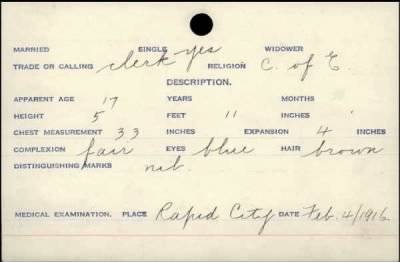 MARRIED SINGLE yes WIDOWER
TRADE OR CALLING clerk RELIGION C. of E.
DESCRIPTION.
APPARENT AGE 17 YEARS MONTHS
HEIGHT 5 FEET 11 INCHES
CHEST MEASUREMENT 33 INCHES EXPANSION 4 INCHES
COMPLEXION fair EYES blue HAIR brown
DISTINGUISHING MARKS nil.
MEDICAL EXAMINATION. PLACE Rapid City DATE Feb. 4/1916.